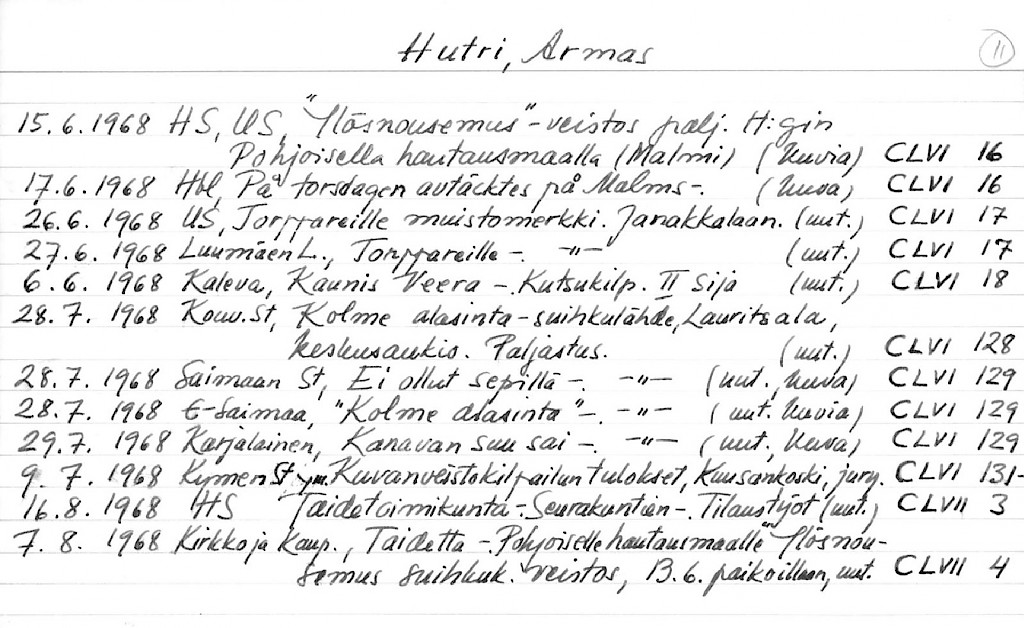 Hutri, Armas
11
15.6.1968 HS, US, "Ylösnousemus"-veistos palj. H:gin
Pohjoisella hautausmaalla (Malmi) (kuvia) CLVI 16
17.6.1968 Hbl, På torsdagen avtäcktes på Malms-. (kuva) CLVI 16
26.6.1968 US, Torppareille muistomerkki. Janakkalaan. (uut.) CLVI 17
27.6.1968 Luumäen L., Torppareille -. -"- (uut.) CLVI 17
6.6.1968 Kaleva, Kaunis Veera -. Kutsukilp. II Sija (uut.) CLVI 18
28.7.1968 Kouv.St, Kolme alasinta-suihkulähde, Lauritsala,
keskusaukio. Paljastus. (uut.) CLVI 128
28.7.1968 Saimaan St, Ei ollut sepillä -. -"- (uut., kuva) CLVI 129
28.7.1968 E-Saimaa, "Kolme alasinta"-. -"- (uut. kuvia) CLVI 129
29.7.1968 Karjalainen, Kanavan suu sai -. -"- (uut., kuva) CLVI 129
9.7.1968 Kymen St ym. Kuvanveistokilpailun tulokset, Kuusankoski, jury. CLVI 131-
16.8.1968 HS Taidetoimikunta-. Seurakuntien-. Tilaustyöt (uut.) CLVII 3
7.8.1968 Kirkko ja Kaup., Taidetta -. Pohjoiselle hautausmaalle "Ylösnou-
semus suihkuk." veistos, 13.6. paikoillaan, uut. CLVII 4